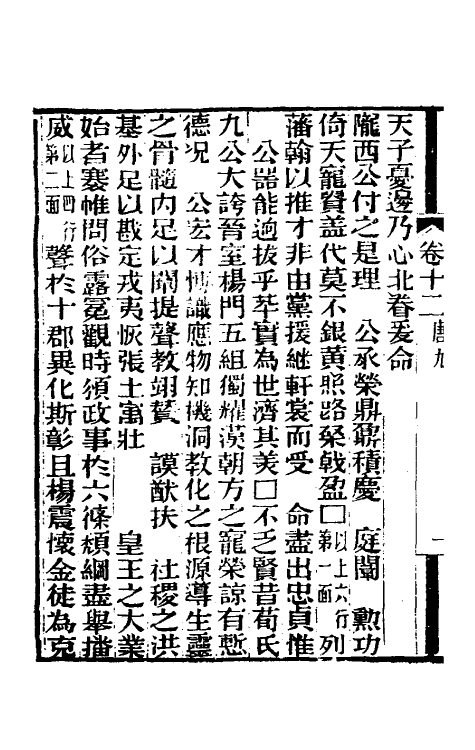 天子憂邊乃心北眷爰命
卷十二 唐九 一
隴西公付之是理　公承榮鼎鼐積慶　庭闈　勲功
倚天寵賢蓋代莫不銀黃照路棨戟盈□以上六行第一面列
藩翰以推才非由黨援继軒裳而受　命盡出忠貞惟
　公器能逈拔乎萃實為世濟其美□不乏賢昔荀氏
九公大誇晉室楊門五組獨耀漢朝方之寵榮諒有慙
德况　公宏才博識應物知機洞教化之根源導生靈
之骨髓内足以闡提聲教翊贊　謨猷扶　社稷之洪
基外足以戡定戎夷恢張土㝢壯　　皇王之大業
始者褰帷問俗露冕觀時須政事於六條頹綱盡舉播
威以上四行第二面聲於十郡異化斯彰且楊震懷金徒為克